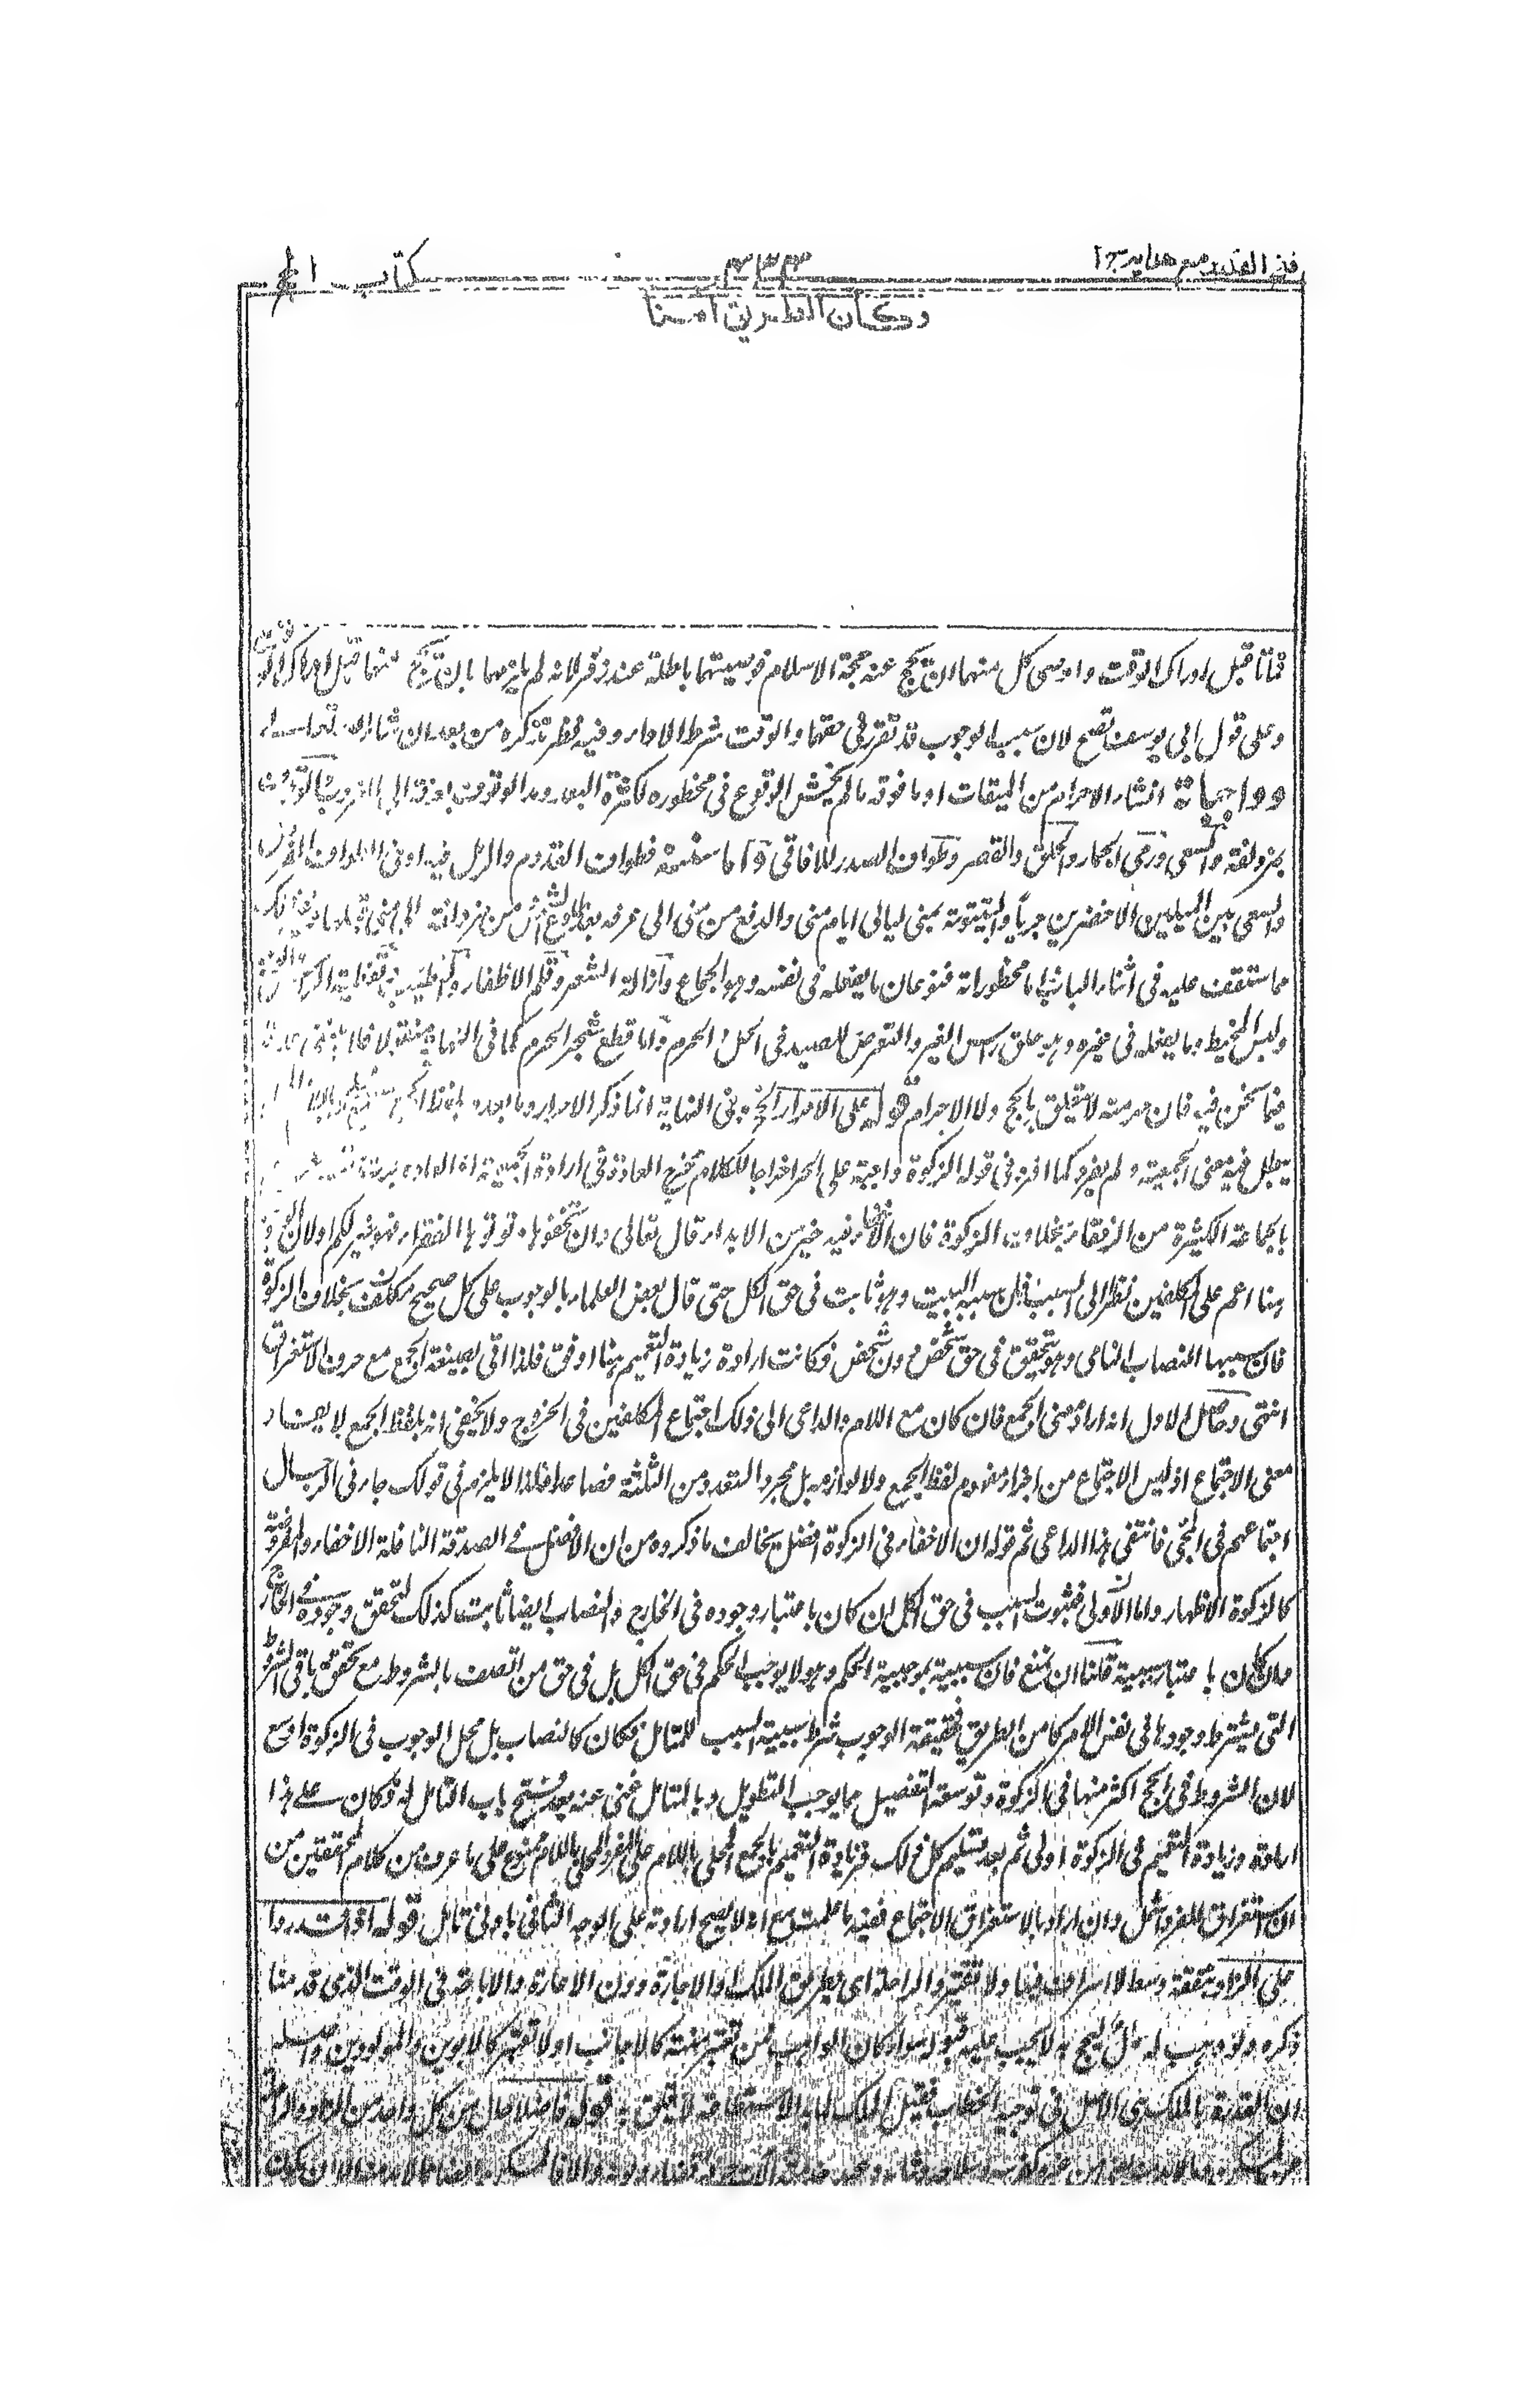 فتح القدير مع هدايه ج ١
٤٣٣
كتاب الحج
وكان الطريق امنا
فماتا قبل ادراك الوقت واوصى كل منهما ان يحج عنه حجة الاسلام فوصيتهما باطلة عند زفر لانه لم يلزمهما بان يحج عنهما قبل ادراك الوقت
وعلى قول ابى يوسف تصح لان سبب الوجوب قد تقرر فى حقهما والوقت شرط الاداء وفيه نظر نذكره من بعد ان شاء الله تعالى
وواجباته انشاء الاحرام من الميقات او ما فوقه ما لم يخش الوقوع فى محظوره لكثرة البعد ومد الوقوف بعرفة الى الغروب والوقوف
بمزدلفة والسعى ورمى الجمار والحلق والقصر وطواف الصدر للافاقى واما سننه فطواف القدوم والرمل فيه او فى الطواف الفرض
والسعى بين الميلين الاخضرين جريا والبيتوتة بمنى ليالى ايام منى والدفع من منى الى عرفه بعد طلوع الشمس من مزدلفة الى منى قبلها وغير ذلك
مما ستقف عليه فى اثناء الباب واما محظوراته فنوعان ما يفعله فى نفسه وهو الجماع وازالة الشعر وقلم الاظفار والتطييب وتغطية الراس
ولبس المخيط وما يفعله فى غيره وهو حلق راس الغير والتعرض للصيد فى الحل والحرم واما قطع شجر الحرم كما فى النهاية
فيما نحن فيه فان حرمته لا تتعلق بالحج ولا الاحرام قوله على الاحرار الخ وفى النهاية انما ذكر الاحرار وما بعده بلفظ الجمع
يبطل فيه معنى الجمعية ولم يفرد كما افرد فى قوله الزكوة واجبة على الحر اخراجا للكلام مخرج العادة فى ارادة الجمعية اذ العادة
بالجماعة الكثيرة من الرفقاء بخلاف الزكوة فان الاخفاء فيه خير من الابداء قال تعالى وان تخفوها وتوتوها الفقراء فهو خير لكم او لان
هنا اعم على المكلفين نظرا الى السبب فان سببه البيت وهو ثابت فى حق الكل حتى قال بعض العلماء بالوجوب على كل صحيح مكلف بخلاف الزكوة
فان سببها النصاب النامى وهو يتحقق فى حق شخص دون شخص فكانت ارادة زيادة التعميم هنا اوفق فلذا اتى بصيغة الجمع مع حرف الاستغراق
انتهى وحاصل الاول انه اراد معنى الجمع فان كان مع اللام والداعى الى ذلك اجتماع المكلفين فى الخروج ولا يخفى انه بلفظ الجمع لا يصار
معنى الاجتماع اذ ليس الاجتماع من اجزاء مفهوم لفظ الجمع ولا لوازمه بل مجرد التعدد من الثلثة فصاعدا فلذا لا يلزم فى قولك جاءنى الرجال
اجتماعهم فى المجئ فانتفى هذا الداعى ثم قوله ان الاخفاء فى الزكوة افضل يخالف ما ذكروه من ان الافضل فى الصدقة النافلة الاخفاء والمفروضة
كالزكوة الاظهار واما الاولى فثبوت السبب فى حق الكل ان كان باعتبار وجوده فى الخارج والنصاب ايضا ثابت كذلك لتحقق وجوده فى الخارج
وان كان باعتبار سببيته قلنا ان نمنع فان سببيته بموجبية الحكم وهو لا يوجب الحكم فى حق الكل بل فى حق من اتصف بالشروط مع تحقق باقى الشروط
التى يشترط وجودها فى نفس الامر كامن الطريق فحقيقة الوجوب شرط سببية السبب للمتامل فكان كالنصاب بل محل الوجوب فى الزكوة اوسع
لان الشروط فى الحج اكثر منها فى الزكوة وتوسعة التفصيل مما يوجب التطويل وبالتامل غنى عنه بعد فتح باب التامل له وكان على هذا
ارادة زيادة التعميم فى الزكوة اولى ثم بعد تسليم كل ذلك فزيادة التعميم بالجمع المحلى باللام على المفرد المحلى باللام ممنوع على ما عرف من كلام المحققين من
ان استغراق المفرد اشمل وان اراد بالاستغراق الاجتماع ففيه ما علمت مع انه لا يصح ارادته على الوجه الثانى باولى تامل قوله اذا قدروا
على الزاد بنفقة وسط لا اسراف فيها ولا تقتير والراحلة اى بطريق الملك او الاجارة دون الاعارة والاباحة فى الوقت الذى قدمنا
ذكره ولو وهب له مال ليحج به لا يجب عليه قبوله سواء كان الواهب ممن تعتبر منته كالاجانب او لا تعتبر كالابوين والمولودين واصله
ان القدرة بالملك هى الاصل فى توجه الخطاب فقبل الملك لما به الاستطاعة لا يتعلق به قوله فاضلا حال من كل واحد من الزاد والراحلة